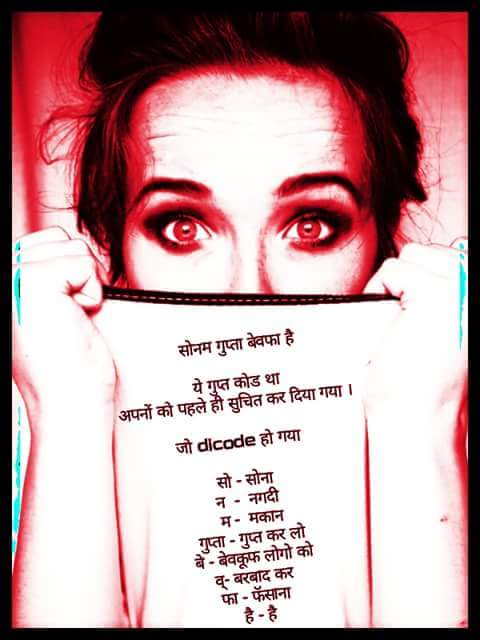 सोनम गुप्ता बेवफा है
ये गुप्त कोड था
अपनों को पहले ही सुचित कर दिया गया ।
जो dicode हो गया
सो - सोना
न - नगदी
म - मकान
गुप्ता - गुप्त कर लो
बे - बेवकूफ लोगो को
व्- बरबाद कर
फा - फॅसाना
है - है